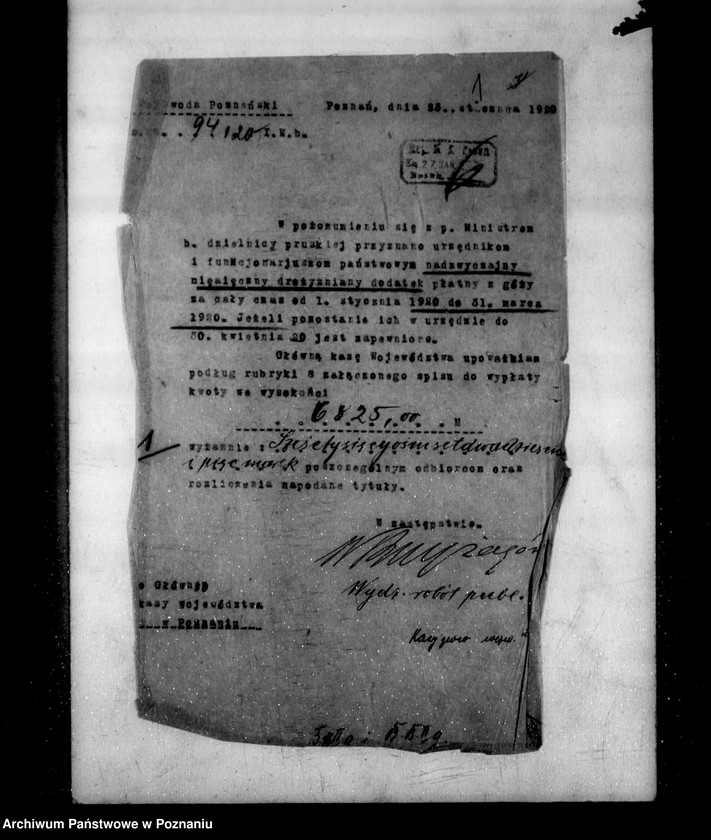 woda Poznański
Poznań, dnia 23. stycznia 1920
94/20 I.W.b.
27 JAN
W porozumieniu się z p. Ministrem
b. dzielnicy pruskiej przyznano urzędnikom
i funkcjonarjuszom państwowym nadzwyczajny
miesięczny drożyźniany dodatek płatny z góry
za cały czas od 1. stycznia 1920 do 31. marca
1920. Jeżeli pozostanie ich w urzędzie do
30. kwietnia 20 jest zapewnione.
Główną kasę Województwa upoważniam
podług rubryki 8 załączonego spisu do wypłaty
kwoty we wysokości
6825,00 M
wyraźnie : Sześć tysięcy ośmset dwadzieścia
i pięć marek poszczególnym odbiorcom oraz
rozliczenia napodane tytuły.
W zastępstwie.
Wydz. robót publ.
o Główną
kasy Województwa
w Poznaniu
Archiwum Państwowe w Poznaniu